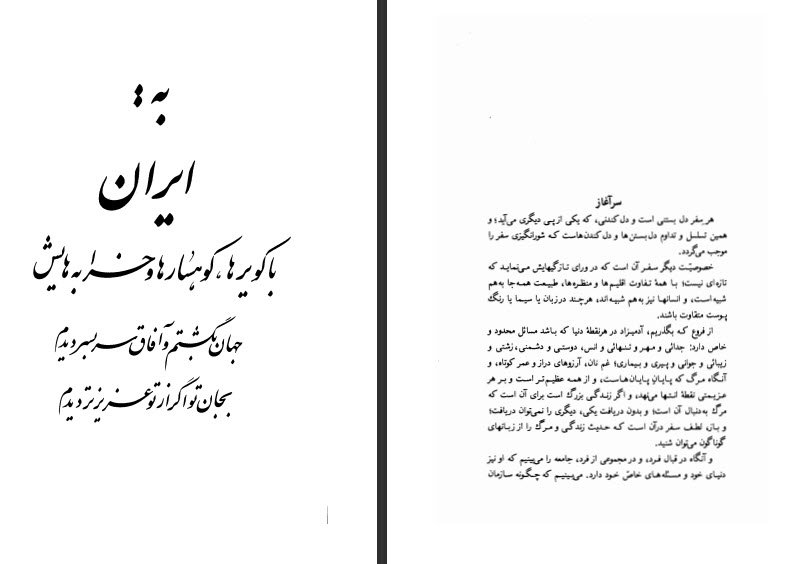 به :
ایران
با کویرها، کوهسارها و خرابه‌هایش
جهان بگشتم و آفاق سر بسر دیدم
بجان تو اگر از تو عزیزتر دیدم
سرآغاز
هر سفر دل بستنی است و دل کندنی، که یکی از پی دیگری می‌آید؛ و
همین تسلسل و تداوم دل‌بستن‌ها و دل‌کندن‌هاست که شورانگیزی سفر را
موجب می‌گردد.
خصوصیّت دیگر سفر آن است که در ورای تازگیهایش می‌نماید که
تازه‌ای نیست؛ با همهٔ تفاوت اقلیم‌ها و منظره‌ها، طبیعت همه‌جا به‌هم
شبیه‌است، و انسانها نیز به‌هم شبیه‌اند، هرچند در زبان یا سیما یا رنگ
پوست متفاوت باشند.
از فروع که بگذریم، آدمیزاد در هرنقطهٔ دنیا که باشد مسائل محدود و
خاص دارد: جدائی و مهر و تنهائی و انس، دوستی و دشمنی، زشتی و
زیبائی و جوانی و پیری و بیماری؛ غم نان، آرزوهای دراز و عمر کوتاه، و
آنگاه مرگ که پایانِ پایان‌هاست، و از همه عظیم‌تر است و بر هر
عزیمتی نقطهٔ انتها می‌نهد، و اگر زندگی بزرگ است برای آن است که
مرگ به‌دنبال آن است؛ و بدون دریافت یکی، دیگری را نمی‌توان دریافت؛
و باز، لطف سفر درآن است که حدیث زندگی و مرگ را از زبانهای
گوناگون می‌توان شنید.
و آنگاه در قبال فرد، و در مجموعی از فرد، جامعه را می‌بینیم که او نیز
دنیای خود و مسئله‌های خاصّ خود دارد. می‌بینیم که چگونه سازمان